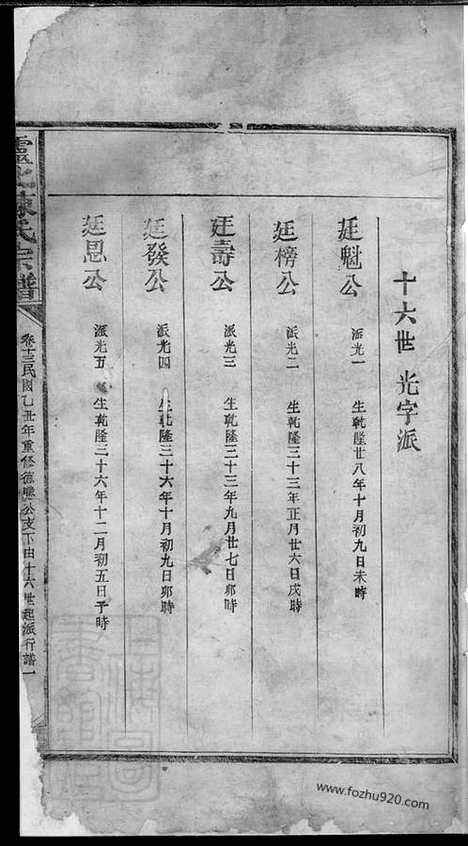 十六世 光字派
廷魁公 派光一 生乾隆廿八年十月初九日未時
廷榜公 派光二 生乾隆三十三年正月廿六日戌時
廷壽公 派光三 生乾隆三十三年九月廿七日卯時
廷發公 派光四 生乾隆三十六年十月初九日卯時
廷恩公 派光五 生乾隆三十六年十二月初五日子時
陳氏宗譜
卷十三民國乙丑年重修德興公支下由十六世起派行譜一
www.fozhu920.com